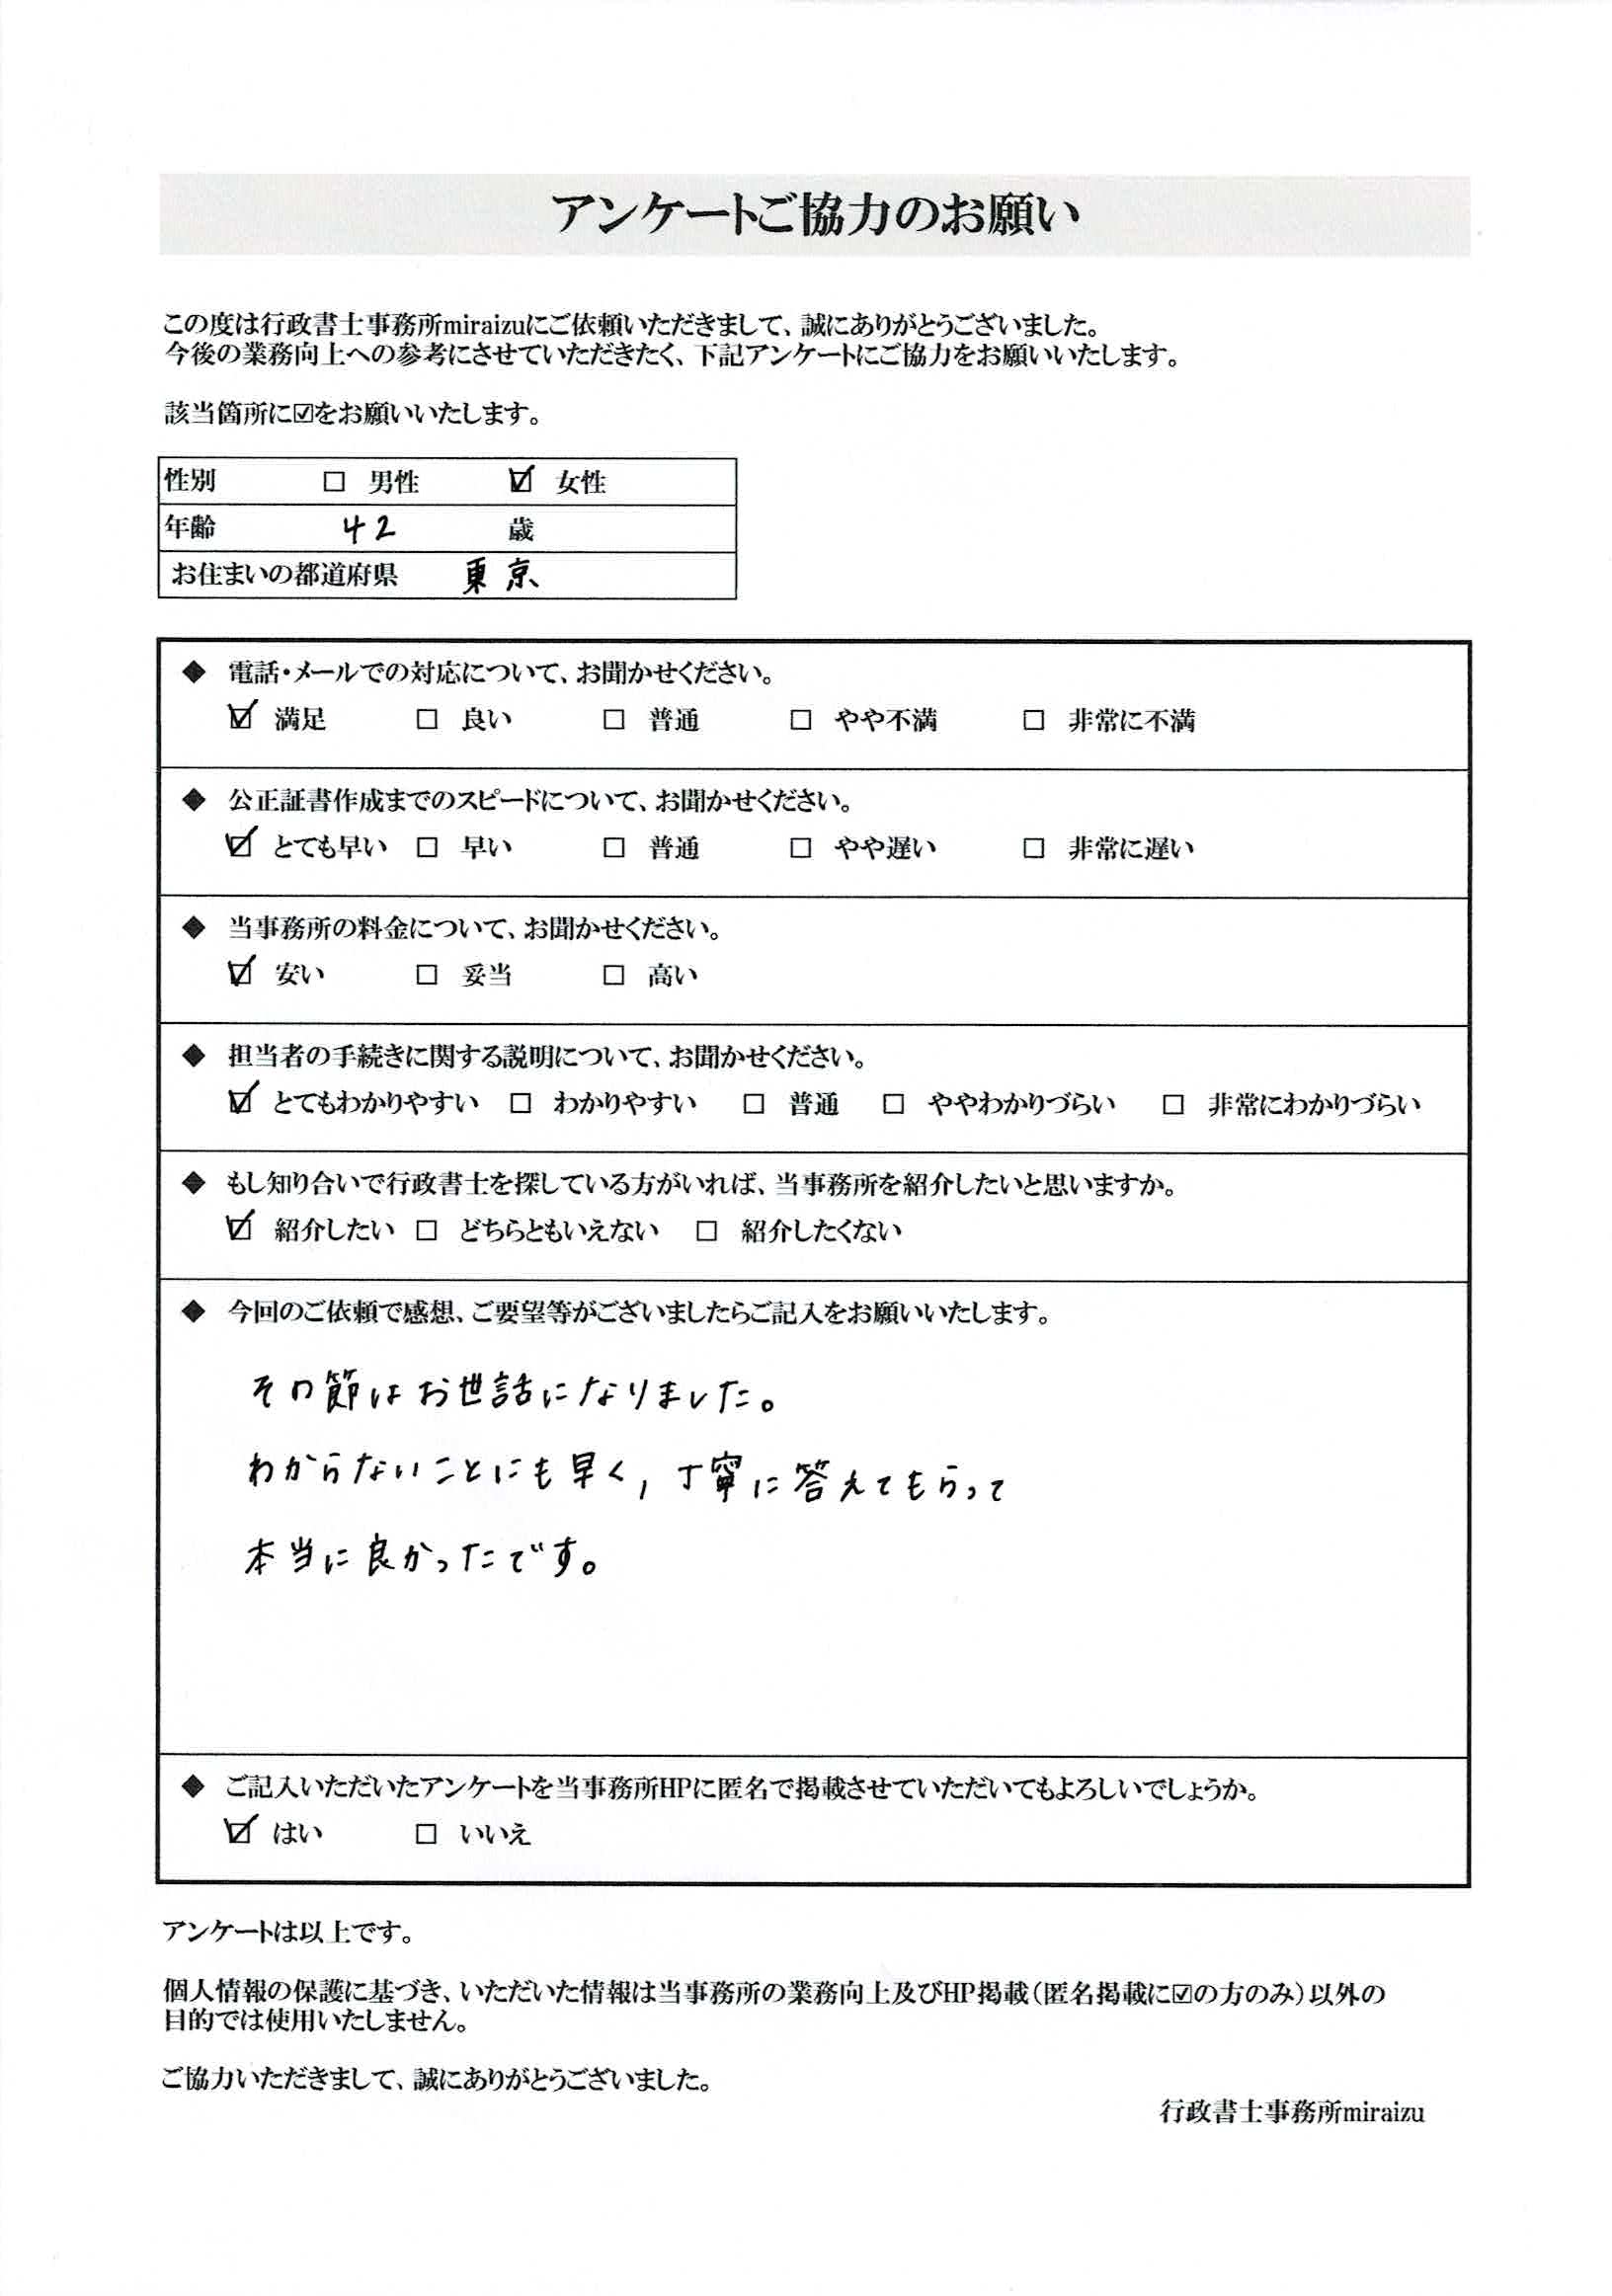 アンケートご協力のお願い
この度は行政書士事務所miraizuにご依頼いただきまして、誠にありがとうございました。
今後の業務向上への参考にさせていただきたく、下記アンケートにご協力をお願いいたします。
該当箇所に☑をお願いいたします。
性別 ☐ 男性 ☑ 女性
年齢 42 歳
お住まいの都道府県 東京
◆ 電話・メールでの対応について、お聞かせください。
☑ 満足 ☐ 良い ☐ 普通 ☐ やや不満 ☐ 非常に不満
◆ 公正証書作成までのスピードについて、お聞かせください。
☑ とても早い ☐ 早い ☐ 普通 ☐ やや遅い ☐ 非常に遅い
◆ 当事務所の料金について、お聞かせください。
☑ 安い ☐ 妥当 ☐ 高い
◆ 担当者の手続きに関する説明について、お聞かせください。
☑ とてもわかりやすい ☐ わかりやすい ☐ 普通 ☐ ややわかりづらい ☐ 非常にわかりづらい
◆ もし知り合いで行政書士を探している方がいれば、当事務所を紹介したいと思いますか。
☑ 紹介したい ☐ どちらともいえない ☐ 紹介したくない
◆ 今回のご依頼で感想、ご要望等がございましたらご記入をお願いいたします。
その節はお世話になりました。
わからないことにも早く,丁寧に答えてもらって
本当に良かったです。
◆ ご記入いただいたアンケートを当事務所HPに匿名で掲載させていただいてもよろしいでしょうか。
☑ はい ☐ いいえ
アンケートは以上です。
個人情報の保護に基づき、いただいた情報は当事務所の業務向上及びHP掲載（匿名掲載に☑の方のみ）以外の
目的では使用いたしません。
ご協力いただきまして、誠にありがとうございました。
行政書士事務所miraizu